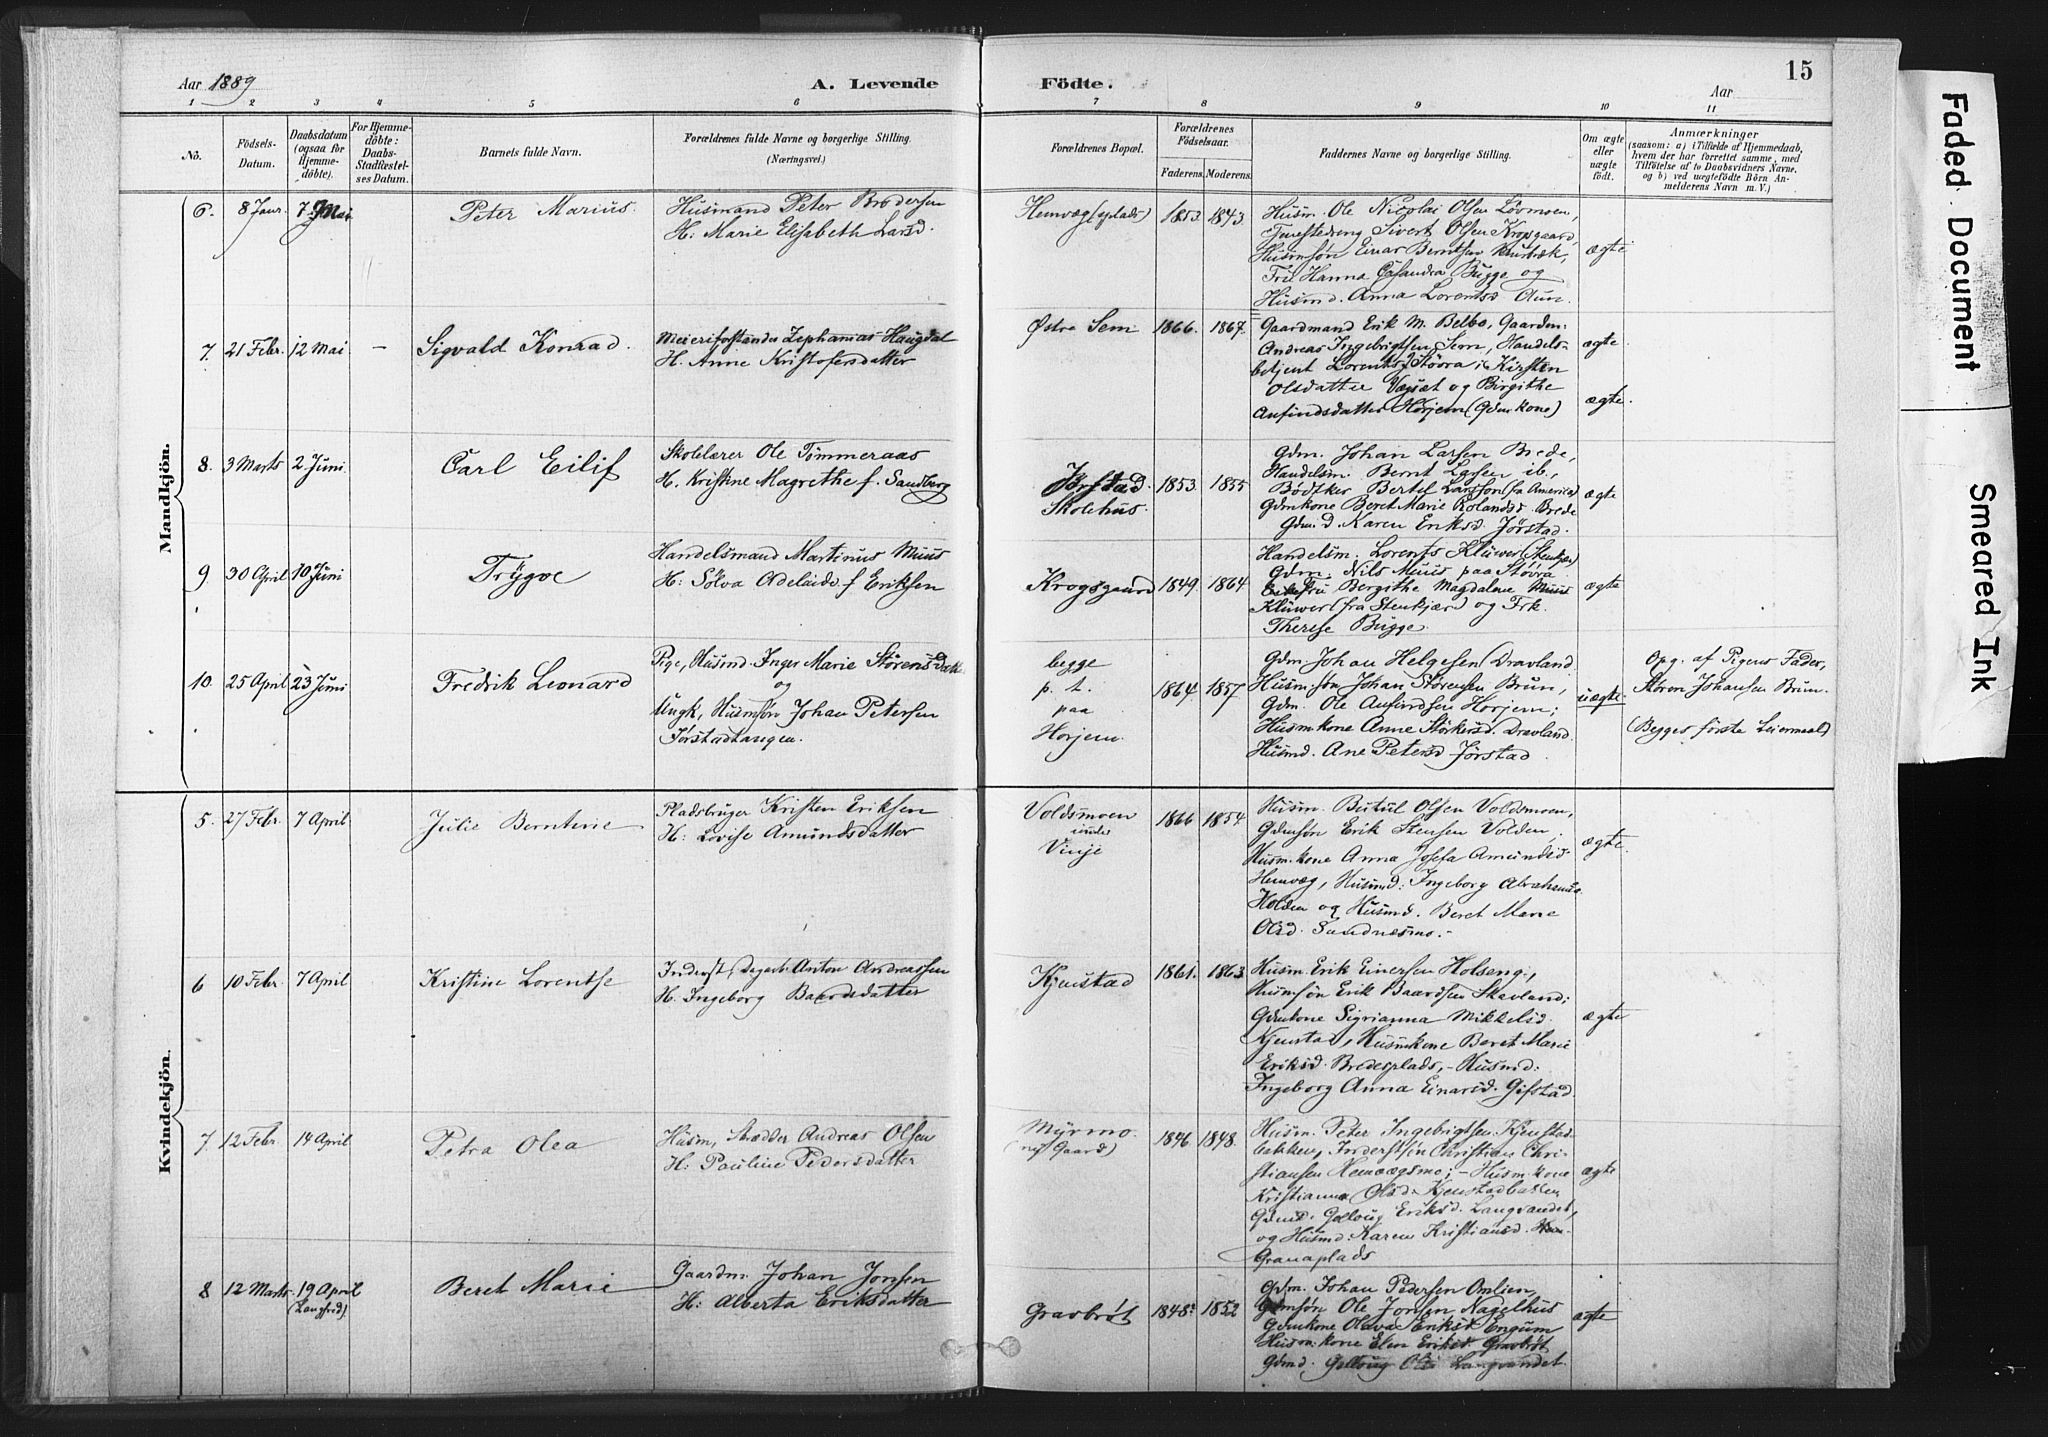 Aar 1889
A. Levende
Födte.
15
Aar
1 2 3 4 5 6 7 8 9 10 11
No.
Födsels-
Datum.
Daabsdatum
(ogsaa for
Hjemme-
döbte).
For Hjemme-
döbte:
Daabs-
Stadfæstel-
ses Datum.
Barnets fulde Navn.
Forældrenes fulde Navne og borgerlige Stilling.
(Næringsvei.)
Forældrenes Bopæl.
Forældrenes
Födselsaar.
Faderens. Moderens.
Faddernes Navne og borgerlige Stilling.
Om ægte
eller
uægte
födt.
Anmærkninger
(saasom: a) i Tilfælde af Hjemmedaab,
hvem der har forrettet samme, med
Tilföielse af to Daabsvidners Navne,
og b) ved uægtefödte Börn An-
melderens Navn m. V.)
Mandkjön.
6. 8 Janr. 7 Mai Peter Marius.
Husmand Peter Brodersen
H: Marie Elisabeth Larsd.
Hemvæg (plads) 1853 1843
Husm. Ole Nicolai Olsen Lövmoen,
Tjenestedreng Sivert Olsen Krogsgaard,
Husmsøn Einar Berntsen
Fru Hanna Casandra Bugge og
Husmd. Anna Lorentsd Aun.
ægte
7. 21 Febr. 12 Mai – Sigvald Konrad.
Meieriforstander Zephanias Haugdal
H. Anne Kristofersdatter
Østre Sem 1866. 1867.
Gaardmand Erik M. Belbo, Gaardm.
Andreas Ingebrigtsen Sem, Handels-
betjent Lorents J Støvra, Kirsten
Olsdatter Vægset og Birgithe
Anfindsdatter Horjem (Gdmkone)
ægte
ægte.
8. 3 Marts 2. Juni Carl Eilif
Skolelærer Ole Tömmeraas
H. Kristine Magrethe f. Sandberg
Jørstad
Skolehus. 1853 1855
Gdm. Johan Larsen Brede,
Handelsm. Bernt Larsen ib.,
Bødtker Bertel Larsson (fra America)
Gdmkone Beret Marie Rolandsd. Brede
Gdm.d. Karen Eriksd. Jørstad.
ægte
9. 30 April 10 Juni Trygve
Handelsmand Martinus Muus
H: Sølva Adelaide f. Eriksen
Krogsgaard 1849. 1864
Handelsm. Lorents Klüwer (Stenkjær)
Gdm. Nils Muus paa Støvra
Fru Bergithe Magdalene Muus
Klüwer (fra Stenkjær) og Frk.
Therese Bugge.
ægte
10. 25 April 23 Juni Fredrik Leonard
Pige, Husmd. Inger Marie Størensdatt
og
Ungk, Husmsøn Johan Petersen
Jørstadtangen.
begge
p. t.
paa
Horjem. 1864 1857
Gdm. Johan Helgesen Dravland.
Husmsøn Johan Størensen Brun,
Gdm. Ole Anfindsen Horjem;
Husmkone Anne Storkersd. Dravland.
Husmd. Ane Petersd Jørstad.
uægte
Opg. af Pigens Fader,
Støren Johansen Brun.
(Begges første Leiermaal)
Kvindekjön.
5. 27 Febr. 7 April Julie Berntine
Pladsbruger Kristen Eriksen
H: Lovise Amundsdatter
Voldsmoen
under
Vinje 1866 1854
Husm. Butul Olsen Voldsmoen,
Gdmsøn Erik Stensen Volden,
Husm.kone Anna Josefa Amundsd.
Hemvæg, Husmd: Ingeborg Abrahams
Holden og Husmd. Beret Marie
Olsd. Sandnesmo.–
ægte.
6 10 Febr. 7 April Kristine Lorentse
Inderst, Dagarb. Anton Andreassen
H. Ingeborg Baardsdatter
Kjenstad 1861. 1863
Husm. Erik Einersen Holseng;
Husmsøn Erik Baardsen Skavland;
Gdmkone Sigrianna Mikkelsd.
Kjenstad, Husmkone Beret Marie
Eriksd. Bredesplads,– Husmd:
Ingeborg Anna Einarsd. Gifstad.
ægte
7. 12 Febr. 14 April Petra Olea
Husm, Skrædder Andreas Olsen
H: Pauline Pedersdatter
Myrmo
(ny Gaard) 1846 1848.
Husm. Peter Ingebrigtsen Kjenstad-
bakken, Inderstsøn Christian Chri-
stiansen Hemvægsmo;– Husm.kone
Kristianna Olsd. Kjenstadbakken
Gdmd. Gollaug Eriksd. Langvandet,
og Husmd. Karen Kristiansd.
Granaplads
ægte
8 12 Marts. 19 April
(Langfred). Beret Marie
Gaardm. Johan Jonsen
H: Alberta Eriksdatter
Gravbrøt 1848. 1852
Gdm. Johan Pedersen Omlien,
Gdmsøn Ole Jonsen Nagelhus
Gdmkone Olava Eriksd Engum
Husm.kone Elen Eriksd. Gravbrøt
Gdmd. Gollaug Olsd Langvandet.
ægte
Faded Document
Smeared Ink